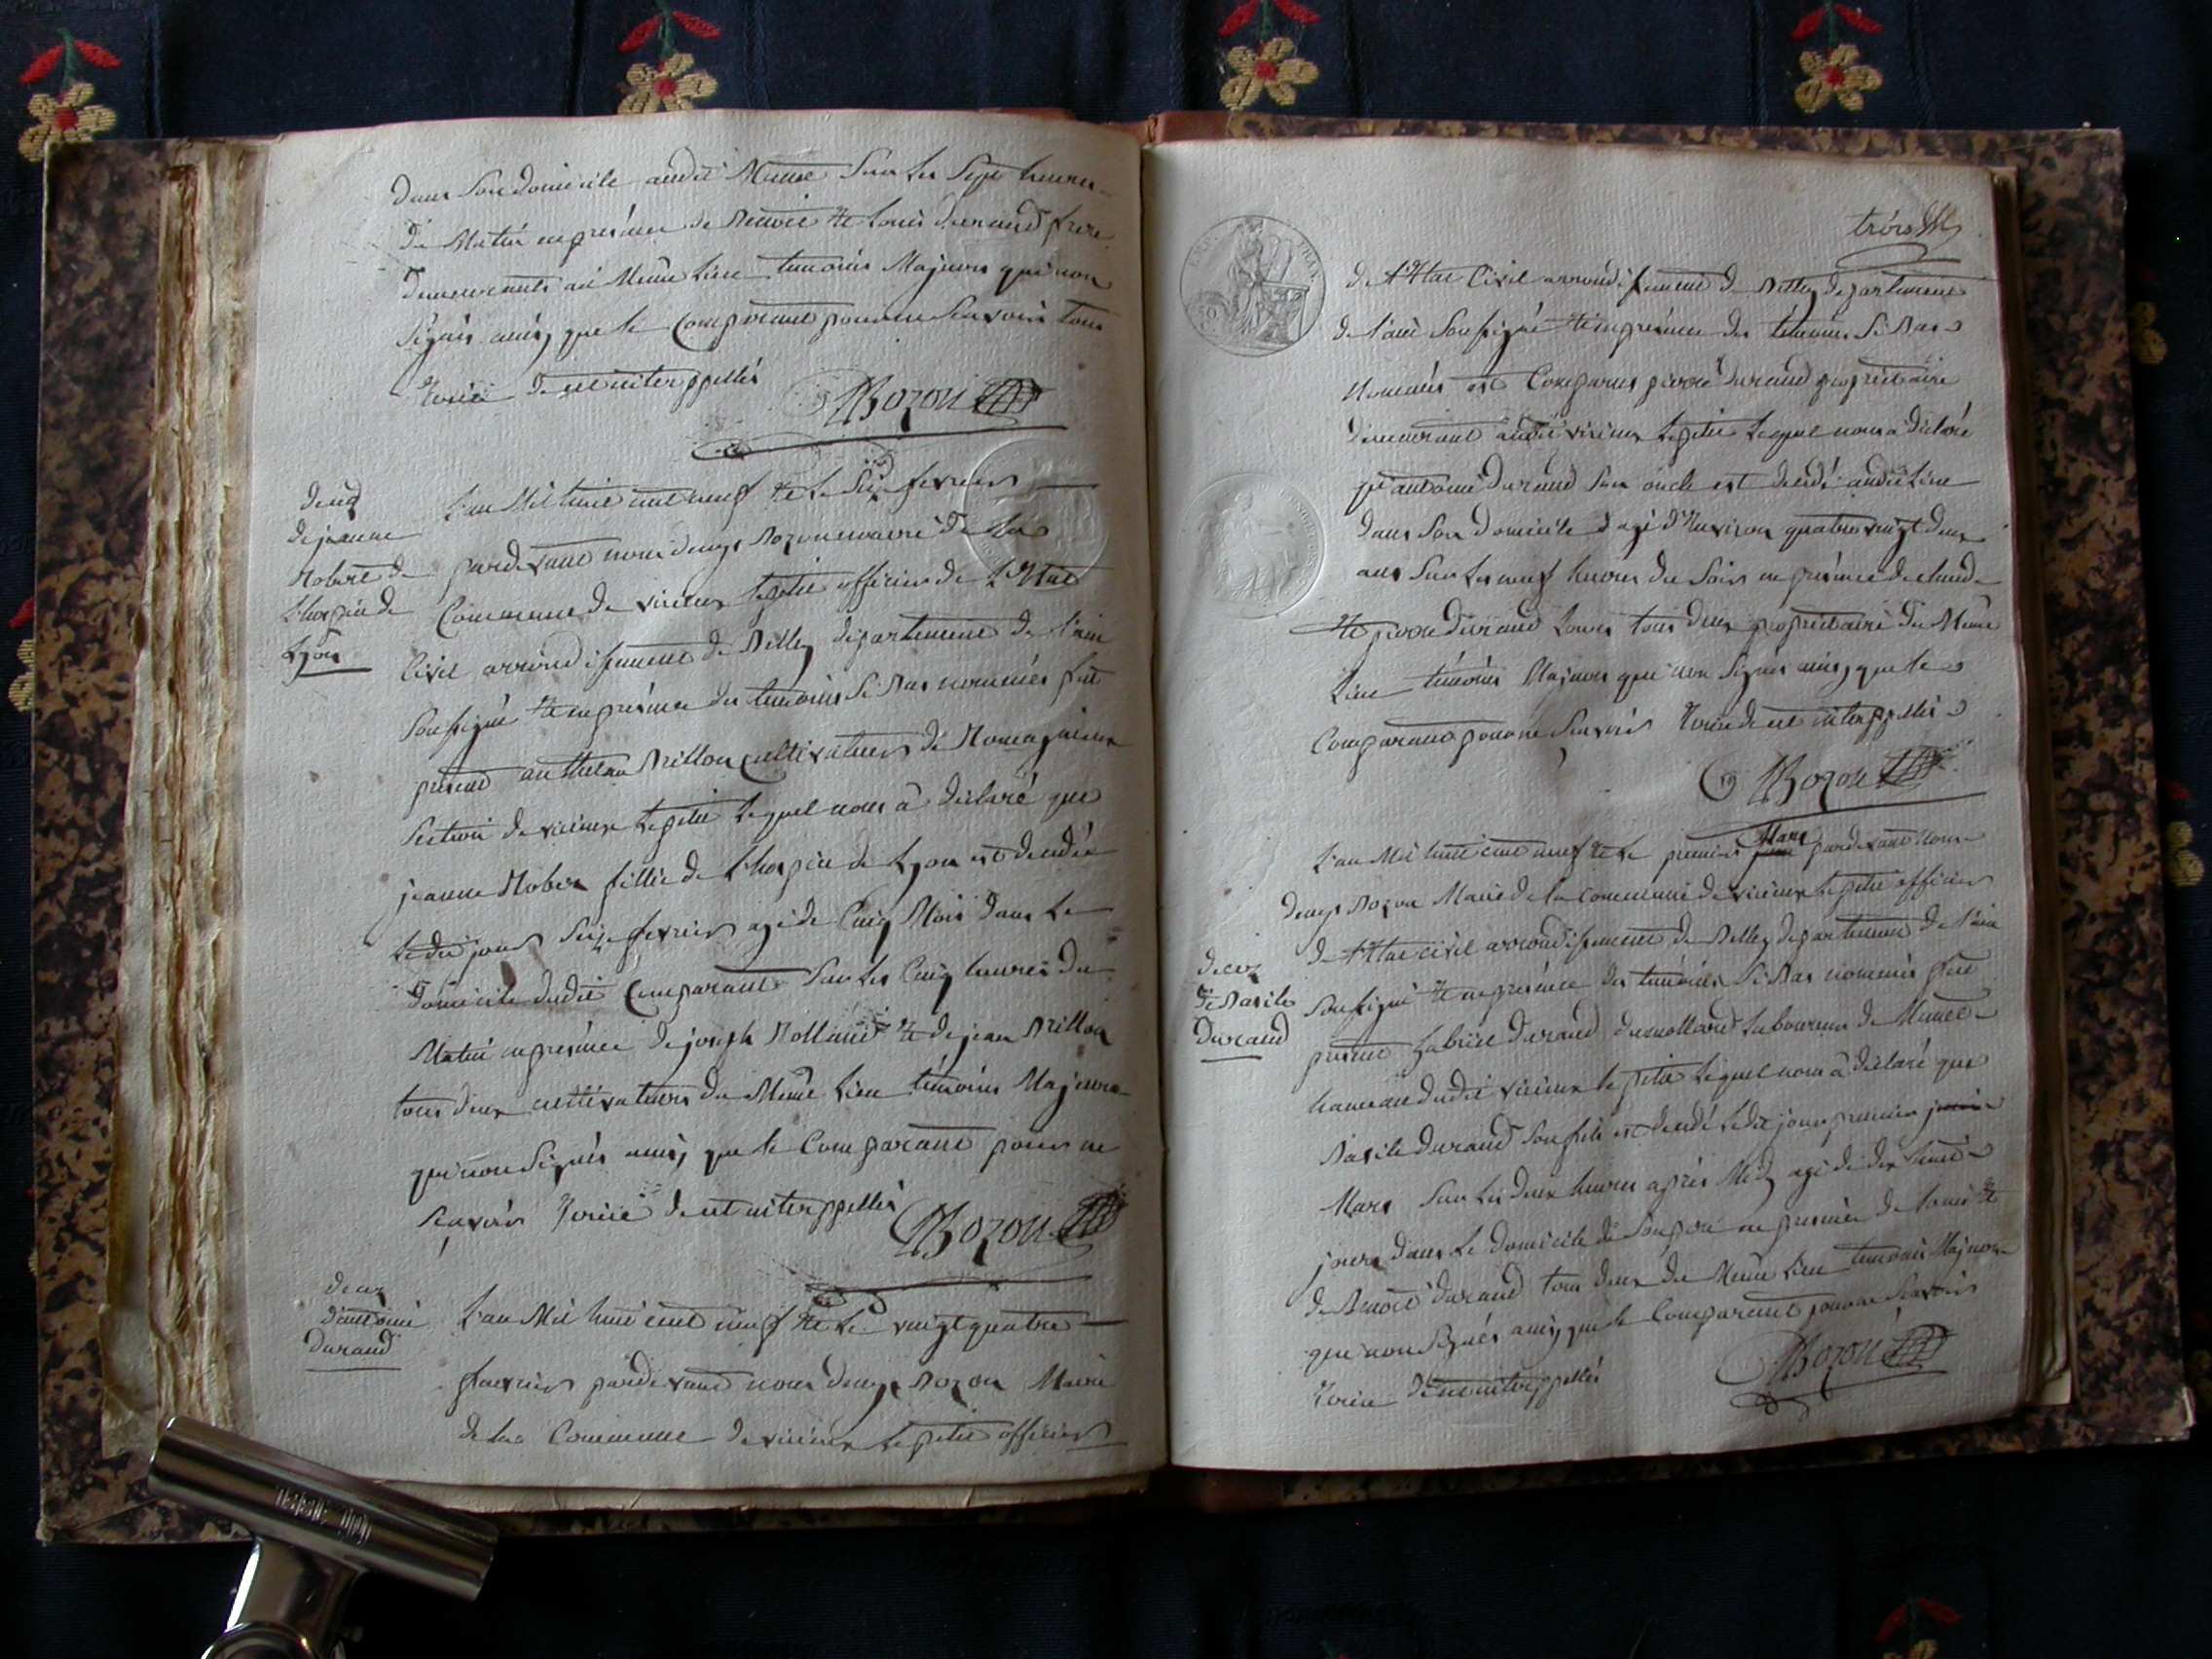 dans son domicile audit Munet sur les sept heures
du Matin en presence de Benoit et Louis durand frere
demeurants au Même Lieu temoins Majeurs qui non
signés ainsi que le Comparant pour ne scavoir tous
de ce interppellés
Bozon
deces
de jeanne
Robert de
L'hospice de
Lyon
L'an Mil huit cent neuf et le seize fevrier
pardevant nous denys Bozon maire de la
Commune de virieux le petit officier de L'Etat
Civil arrondissement de Belley departement de L'ain
soussigné et en presence des temoins si Bas nommés fut
present anthelme Billon Cultivateur de
section de virieux le petit Lequel nous à déclaré que
jeanne Rober fillie de L'hospice de Lyon est decedée
Le dit jour seize fevrier agé de Cinq Mois dans Le
domicile dudit Comparant sur les Cinq heures du
Matin en presence de joseph et de jean Billon
tous deux cultivateurs du Même Lieu temoins Majeurs
qui non signés ainsi que le Comparant pour ne
scavoir de ce interppellés
Bozon
deces
d'antoine
durand
L'an Mil huit cent neuf et le vingt quatre
fevrier pardevant nous denys Bozon Maire
de la Commune de virieux le petit officier
trois
de L'Etat Civil arrondissement de Belley departement
de L'ain soussigné et en presence des temoins si Bas
Nommés est Comparus pierre durand propriétaire
demeurant audit virieux le petit Lequel nous à déclaré
qu'antoine durand son oncle est decedé audit Lieu
dans son domicile agé d'Environ quatre vingt deux
ans sur les neuf heures du soir en presence de claude
et pierre durand tous deux propriétaire du Même
Lieu témoins Majeurs qui non signés ainsi que le
Comparant pour ne scavoir de ce interppellés
Bozon
L'an Mil huit cent neuf et le premier Mars pardevant nous
denys Bozon Maire de la commune de virieux le petit officier
de L'Etat civil arrondissement de Belley departement de L'ain
deces
de Basile
Durand
soussigné et en presence des temoins si Bas nommés fut
present durand Laboureur de Munet
hameau dudit virieux le petit Lequel nous à déclaré que
Basile durand son fils est decedé Le dit jour premier
Mars sur les deux heures après Midy agé de dix huit
jours dans Le domicile de son pere en presence de Louis et
de Benoit durand tous deux du Même Lieu temoins Majeurs
qui non signés ainsi que le Comparant pour ne scavoir
de ce interppellés
Bozon